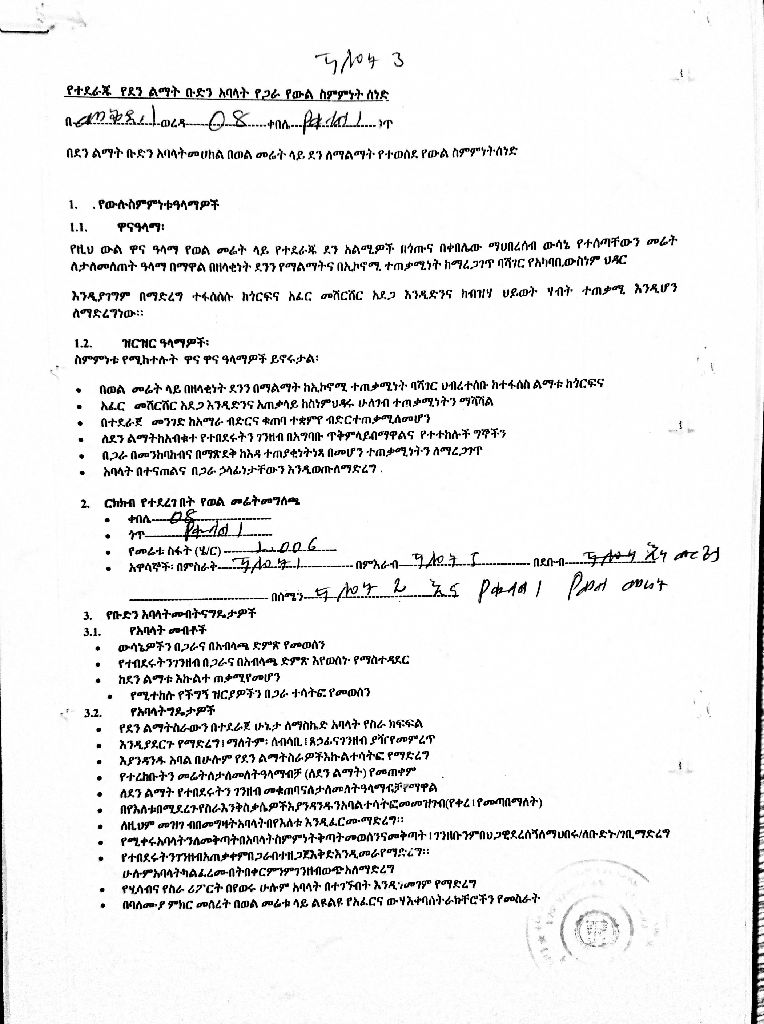 3
የተደራጁ የደን ልማት ቡድን አባላት የጋራ የውል ስምምነት ሰነድ
በ ወረዳ 08 ቀበሌ ጎጥ
በደን ልማት ቡድን አባላትመሀከል በወል መሬት ላይ ደን ለማልማት የተወሰደ የውል ስምምነትሰነድ
1. .የውሉስምምነቱዓላማዎች
1.1. ዋናዓላማ፡
የዚህ ውል ዋና ዓላማ የወል መሬት ላይ የተደራጁ ደን አልሚዎች በጎጡና በቀበሌው ማህበረሰብ ውሳኔ የተሰጣቸውን መሬት
ለታለመለጠት ዓላማ በማዋል በዘላቂነት ደንን የማልማትና በኢኮኖሚ ተጠቃሚነት ከማረጋገጥ ባሻገር የአካባቢውስነም ህዳር
እንዲያገግም በማድረግ ተፋሰሰሱ ከጎርፍና አፈር መሸርሸር አደጋ እንዲድንና ከብዝሃ ህይወት ሃብት ተጠቃሚ እንዲሆን
ለማድረግነው።
1.2. ዝርዝር ዓላማዎች፡
ስምምነቱ የሚከተሉት ዋና ዋና ዓላማዎች ይኖሩታል፡
• በወል መሬት ላይ በዘላቂነት ደንን በማልማት ከኢኮኖሚ ተጠቃሚነት ባሻገር ህብረተሰቡ ከተፋሰስ ልማቱ ከጎርፍና
• አፈር መሸርሸር አደጋ እንዲድንና አጠቃላይ ከስነምህዳሩ ሁለገብ ተጠቃሚነትን ማሻሻል
• በተደራጀ መንገድ ከአማራ ብድርና ቁጠባ ተቋምየ ብድርተጠቃሚለመሆን
• ለደን ልማትከአብቁተ የተበደሩትን ገንዘብ በአግባቡ ጥቅምላይበማዋልና የተተከሉት ግኞችን
• በጋራ በመንከባከብና በማጽደቅ ከእዳ ተጠያቂነትነጻ በመሆን ተጠቃሚነትን ለማረጋገጥ
• አባላት በተናጠልና በጋራ ኃላፊነታቸውን እንዲወጡለማድረግ .
2. ርክክብ የተደረገ በት የወል መሬትመግለጫ
• ቀበሌ 08
• ጎጥ
• የመሬቱ ስፋት (ሄ/ር)
• አዋሳኞች፡ በምስራት በምእራብ በደቡብ
በሰሜን
3. የቡድን አባላትመብትናግዴታዎች
3.1. የአባላት መብቶች
• ውሳኔዎችን በጋራና በአብላጫ ድምጽ የመወሰን
• የተበደሩትንገንዘብ በጋራና በአብላጫ ድምጽ እየወሰኑ የማስተዳደር
• ከደን ልማቱ እኩልተ ጠቃሚየመሆን
• የሚተከሉ የችግኝ ዝርያዎችን በጋራ ተሳትፎ የመወሰን
3.2. የአባላትግዴታዎች
• የደን ልማትስራውን በተደራጀ ሁኔታ ለማስኬድ አባላት የስራ ክፍፍል
• እንዲያደርጉ የማድረግ፣ ማለትም፡ ሰብሳቢ፣ ጸኃፊናገንዘብ ያዥየመምረጥ
• እያንዳንዱ አባል በሁሉም የደን ልማትስራዎችእኩልተሳትፎ የማድረግ
• የተረከቡትን መሬትለታለመለትዓላማብቻ (ለደን ልማት) የመጠቀም
• ለደን ልማት የተበደሩትን ገንዘብ መቁጠባናለታለመለትዓላማብቻየማዋል
• በየእለቱበሚደረጉየስራእንቅስቃሴዎችእያንዳንዱንአባልተሳትፎመመዝገብ(የቀረ፣ የመጣበማለት)
• ለዚህም መዝገ ብበመግዛትአባላትበየእለቱ እንዲፈርሙማድረግ።
• የሚቀሩአባላትንለመቅጣትበአባላትስምምነትቅጣትመወሰንናመቅጣት ፣ ገንዘቡንምበህጋዊደረሰኝለማህበሩ/ለቡድኑ/ገቢማድረግ
• የተበደሩትንገንዘብአጠቃቀምበጋራበተዘጋጀእቅድእንዲመራየማድረግ።
ሁሉምአባላትካልፈረሙበትበቀርምንምገንዘብወጭአለማድረግ
• የሂሳብና የስራ ሪፖርት በየወሩ ሁሉም አባላት በተገኙበት እንዲገመገም የማድረግ
• በባለሙያ ምክር መሰረት በወል መሬቱ ላይ ልዩልዩ የአፈርና ውሃእቀባስትራክቸሮችን የመስራት